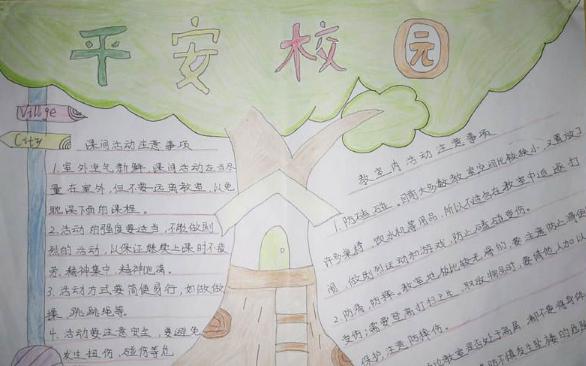 平安校园
Village
City
课间活动注意事项
1.室外空气新鲜,课间活动应当尽
量在室外,但不要远离教室,以免
耽误下面的课程。
2.活动的强度要适当,不做剧
烈的活动,以保证继续上课时不疲
劳,精神集中,精神饱满。
3.活动方式要简便易行,如做做
操,跳跳绳等。
4.活动要注意安全,要避免
发生扭伤,碰伤等危
教室内活动注意事项
1.防磕碰。目前大多数教室空间比较狭小,又置放了
许多桌椅、饮水机等用品,所以不应在教室中追逐、打
闹,做剧烈运动和游戏,防止磕碰受伤。
2.防滑,防摔。教室地板比较光滑的,要注意防止滑倒
受伤;需要登高打扫卫生、取放物品时,要请他人加以
保护,注意防摔伤。
教室是否处于高层,都不要将身体
防不慎发生坠楼的危险